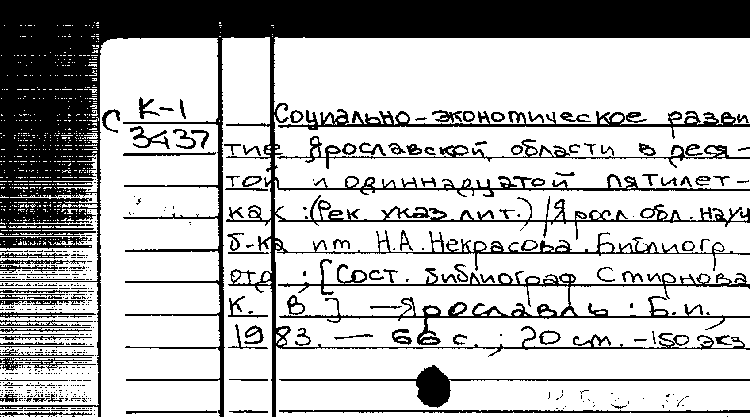 С К-1
3437
Социально-экономическое разви
тие Ярославской области в деся-
той и одиннадцатой пятилет-
ках : (Рек. указ. лит.) / Яросл. обл. науч
б-ка им. Н.А. Некрасова. Библиогр.
отд ; [Сост. библиограф Смирнова
К. В.] — Ярославль : Б.и.,
1983. — 66 с. ; 20 см. - 150 экз